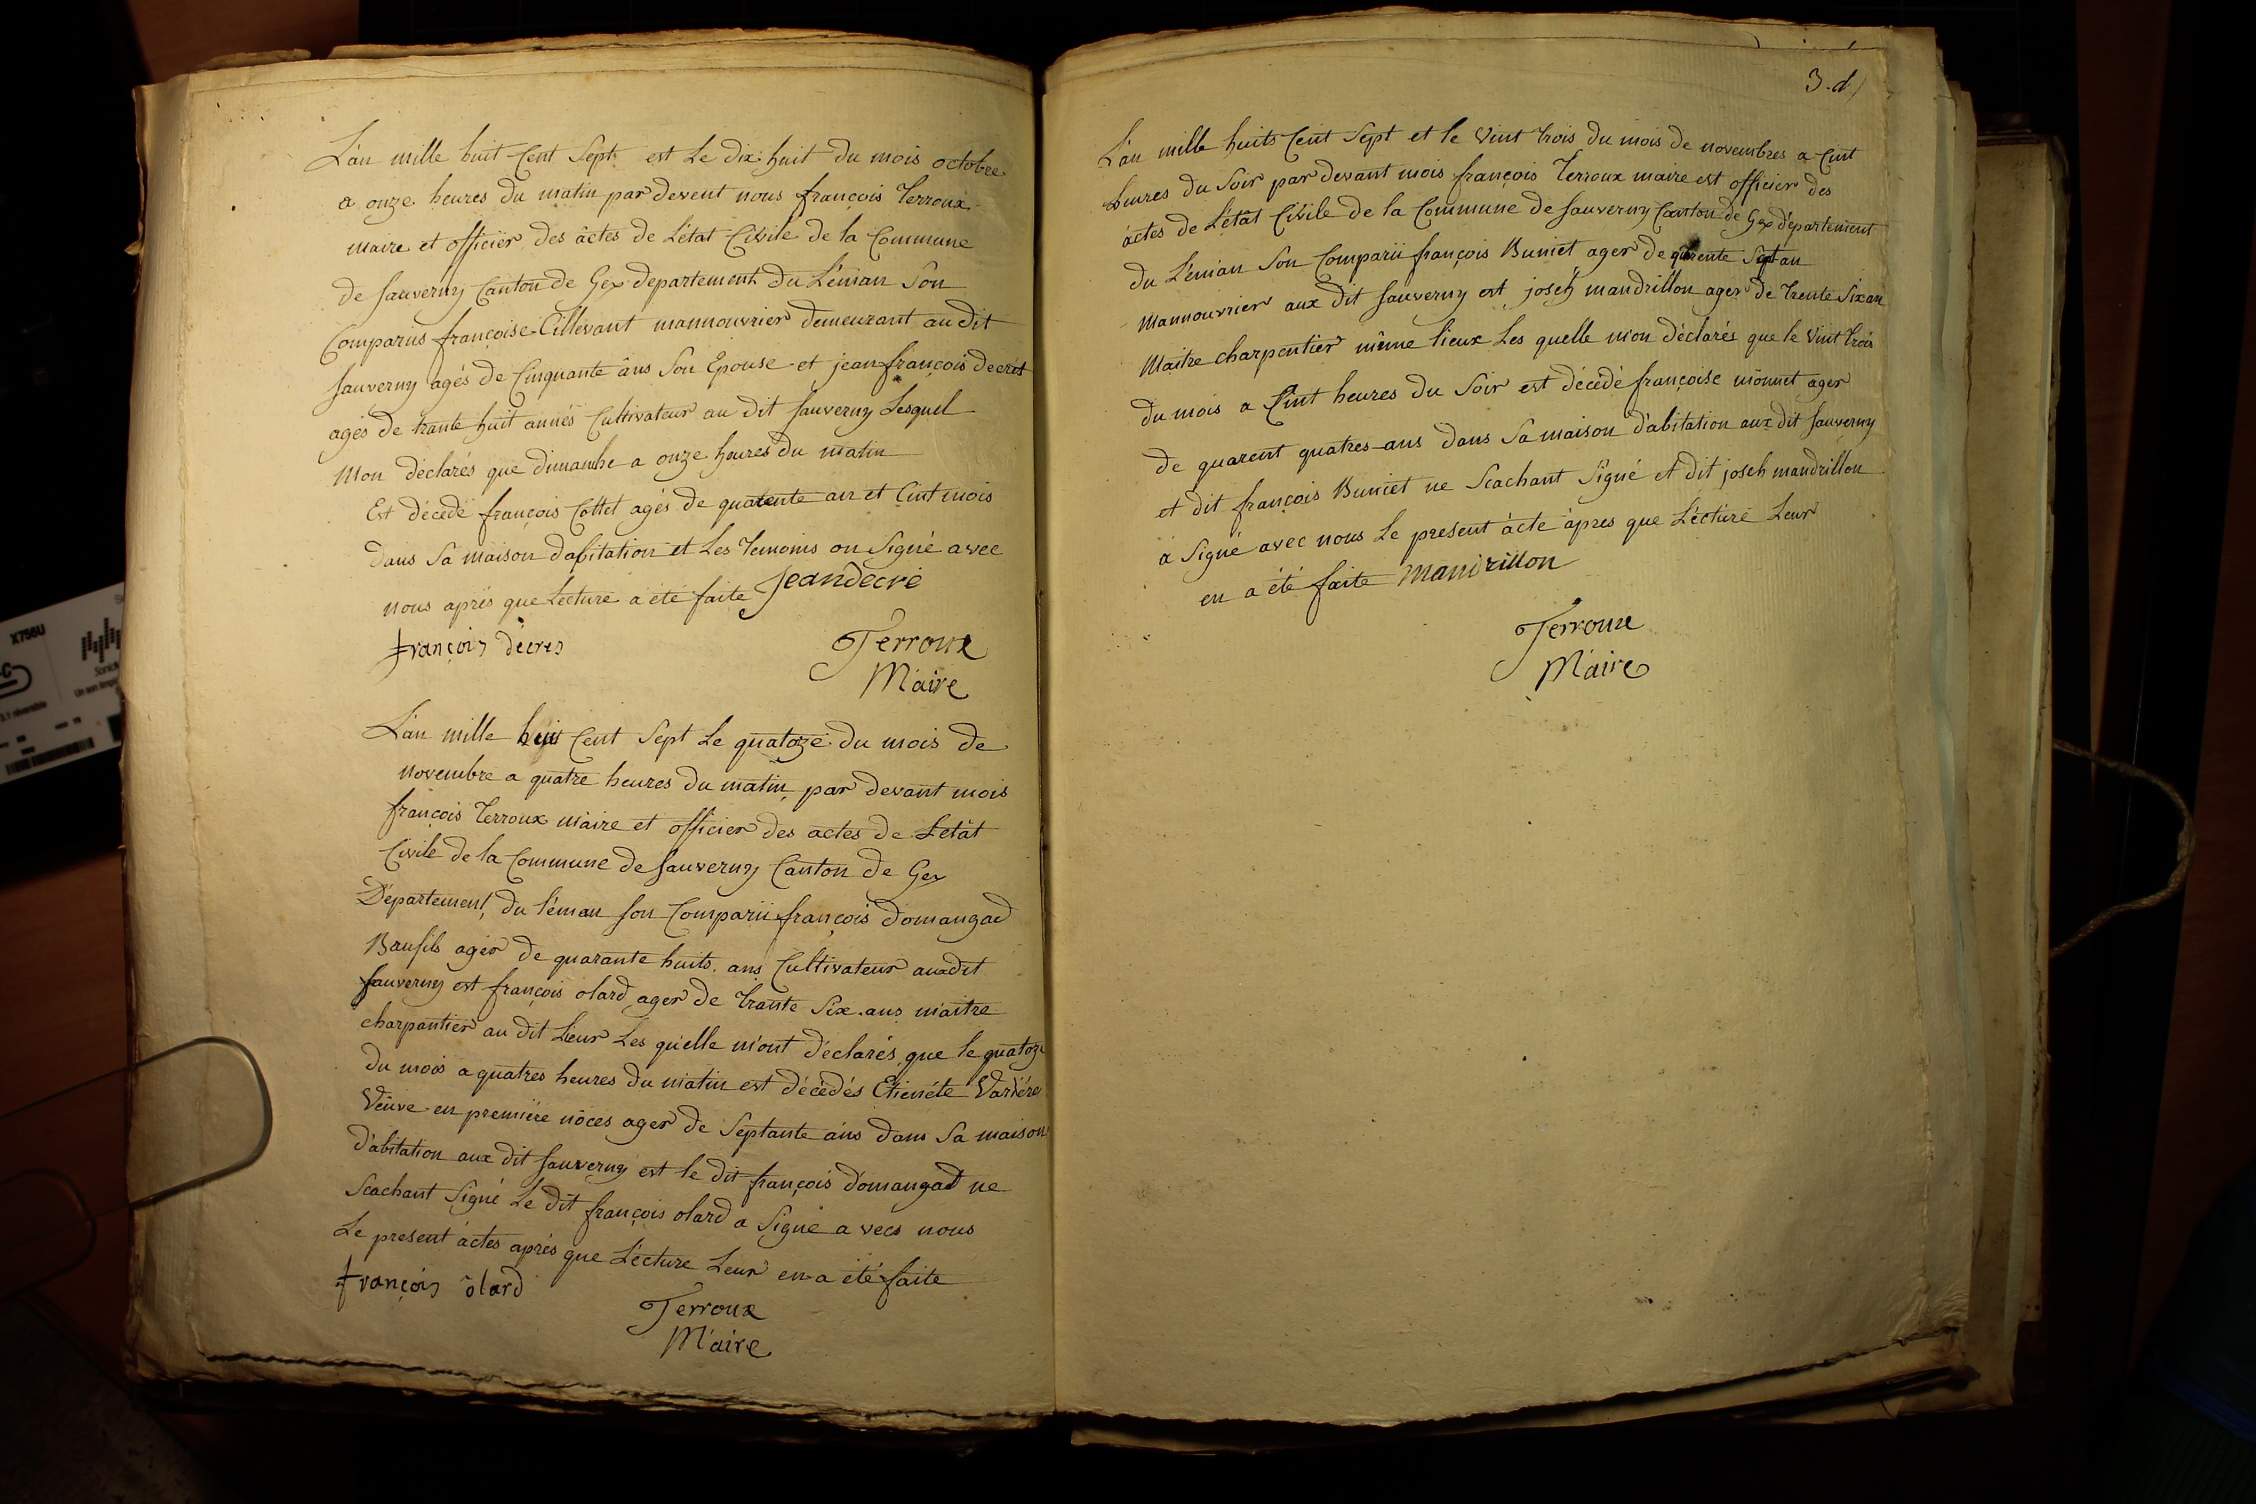 L'an mille huit Cent Sept est Le dix huit du mois octobre
a onze heures du matin par devent nous françois Terroux
maire et officiër des àctes de L'état Civile de la Commune
de Sauverny Canton de Gex departement du L'éman Son
Comparus françoise Cillévant mannouvrier demeurant au dit
Sauverny agés de Cinquante àns Son Epouse et jean françois decrét
agés de trante huit annés Cultivateur au dit Sauverny Lesquel
Mon déclarés que dimanhe a onze heures du matin
Est décédé françois Cottet agés de quarente an et Cint mois
dans Sa maison dabitation et Les Temoins on Signé avec
nous aprés que Lecture a été faite Jeandecré
françois décres Terroux
Maire
L'an mille huit Cent Sept Le quatoze du mois de
novembre a quatre heures du matin par devant mois
françois Terroux maire et officier des actes de L'etât
Civile de la Commune de Sauverny Canton de Gex
Département du léman Son Comparii françois domangad
Baufils ager de quarante huits ans Cultivateur auxdit
Sauverny est françois olard ager de trante Six ans màitre
charpantier au dit Lieux Les quelle m'ont déclarés que le quatoze
du mois a quatres heures du matin est décédés Etienéte Vardére
Véuve en premiére nôces ager de Septante àns dans Sa maison
d'abitation aux dit Sauverny est le dit françois domangad ne
Scachant Signé Le dit françois olard a Signé a vecs nous
Le present áctes aprés que Lécture Leur en a été faite
françois olard
Terroux
Maire
3. d/
L'an mille huits Cent Sept et le Vint trois du mois de novembres a Cint
heures du Soir par devant mois françois Terroux maire est officier des
àctes de L'étât Civile de la Commune de Sauverny Canton de Gex département
du L'éman Son Comparii françois Buniet ager de quarente Sept an
Mannouvrier aux dit Sauverny est joseh mandrillon ager de trente Six an
Maitre charpentiér même lieux Les quelle mon déclarés que le Vint trois
du mois a Cint heures du Soir est décédé françoise monnet ager
de quarent quatres ans dans Sa maison d'abitation aux dit Sauverny
et dit françois Buniet ne Scachant Signé et dit joseh mandrillon
a Signé avec nous Le present àcte àpres que Lécture Leur
en a été faite Mandrillon
Terroux
Maire